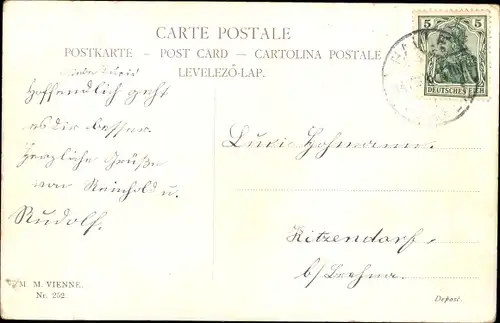 CARTE POSTALE
POSTKARTE – POST CARD – CARTOLINA POSTALE
LEVELEZŐ-LAP.
5 5
DEUTSCHES REICH
Hoffendlich geht
es dir besser.
Herzliche Grüße
von Reinhold u.
Rudolf.
Hohmann
Kitzendorf.
b/ Brehna.
M. M. VIENNE.
Nr. 252.
Depost.